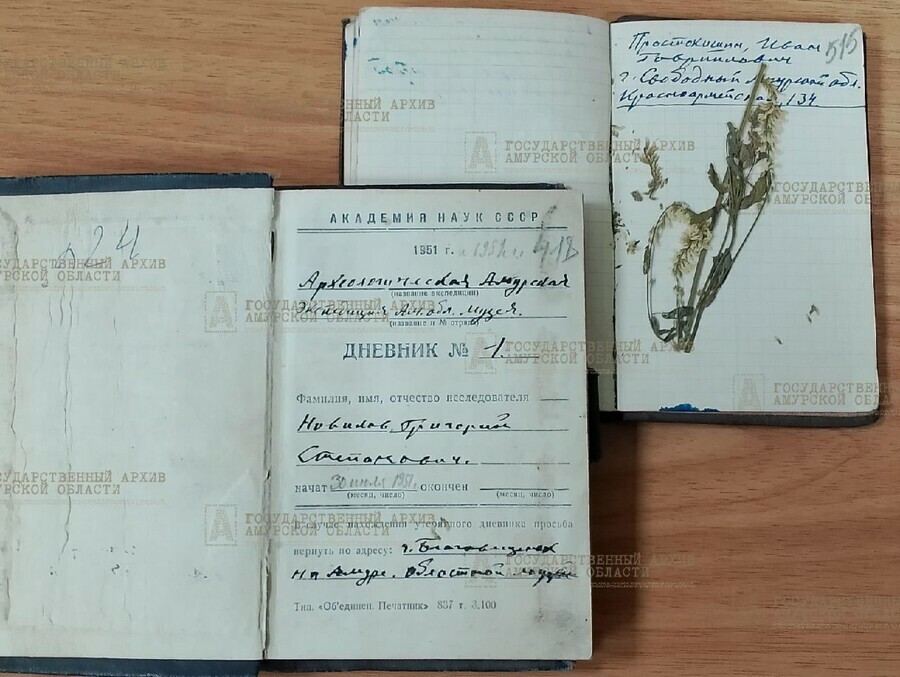 Простокишин, Иван 515
Гавриилович
г. Свободный Амурской обл.
Красноармейская, 134
524
АКАДЕМИЯ НАУК СССР
1951 г. и 1952 г. 418
Археологическая Амурская
(название экспедиции)
экспедиция Ам. обл. музея.
(название и № отряда)
ДНЕВНИК № 1.
Фамилия, имя, отчество исследователя
Новиков, Григорий
Степанович.
начат 30 июля 1951 г. окончен
(месяц, число) (месяц, число)
В случае нахождения утерянного дневника просьба
вернуть по адресу: г. Благовещенск
на Амуре. Областной музей
Тип. «Об'един. Печатник» 887 г. 3.100
ГОСУДАРСТВЕННЫЙ АРХИВ
АМУРСКОЙ ОБЛАСТИ